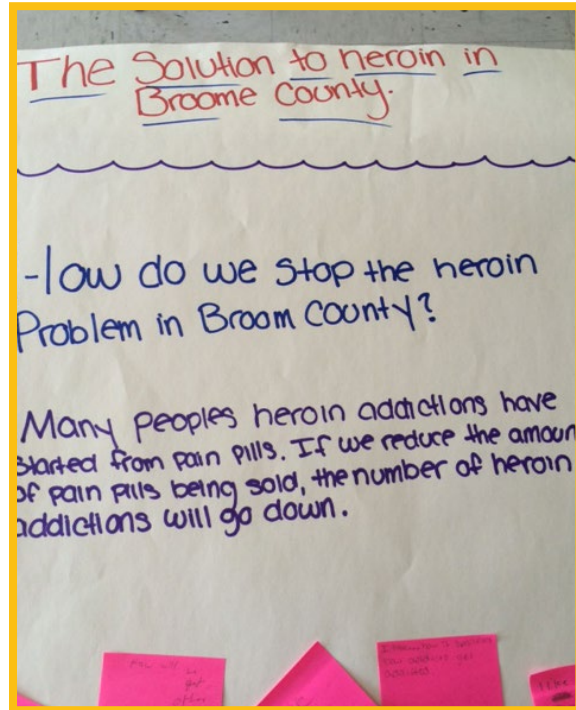 The Solution to heroin in
Broome County.
How do we stop the heroin
Problem in Broom County?
Many peoples heroin addictions have
started from pain pills. If we reduce the amoun
of pain pills being sold, the number of heroin
addictions will go down.
How will
we
get
I
addicts get
addicted
I like